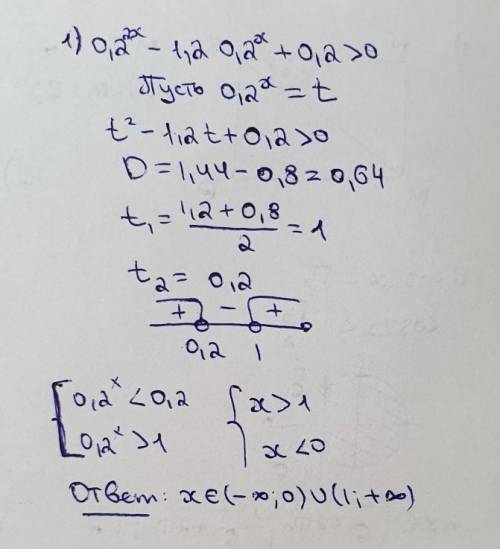 1) 0,2^2x - 1,2 0,2^x + 0,2 > 0
Пусть 0,2^x = t
t² - 1,2t + 0,2 > 0
D = 1,44 - 0,8 = 0,64
t₁ = (1,2 + 0,8)/2 = 1
t₂ = 0,2
+ - +
0,2 1
[ 0,2^x < 0,2 { x > 1
0,2^x > 1 x < 0
Ответ: x ∈ (-∞; 0) ∪ (1; +∞)